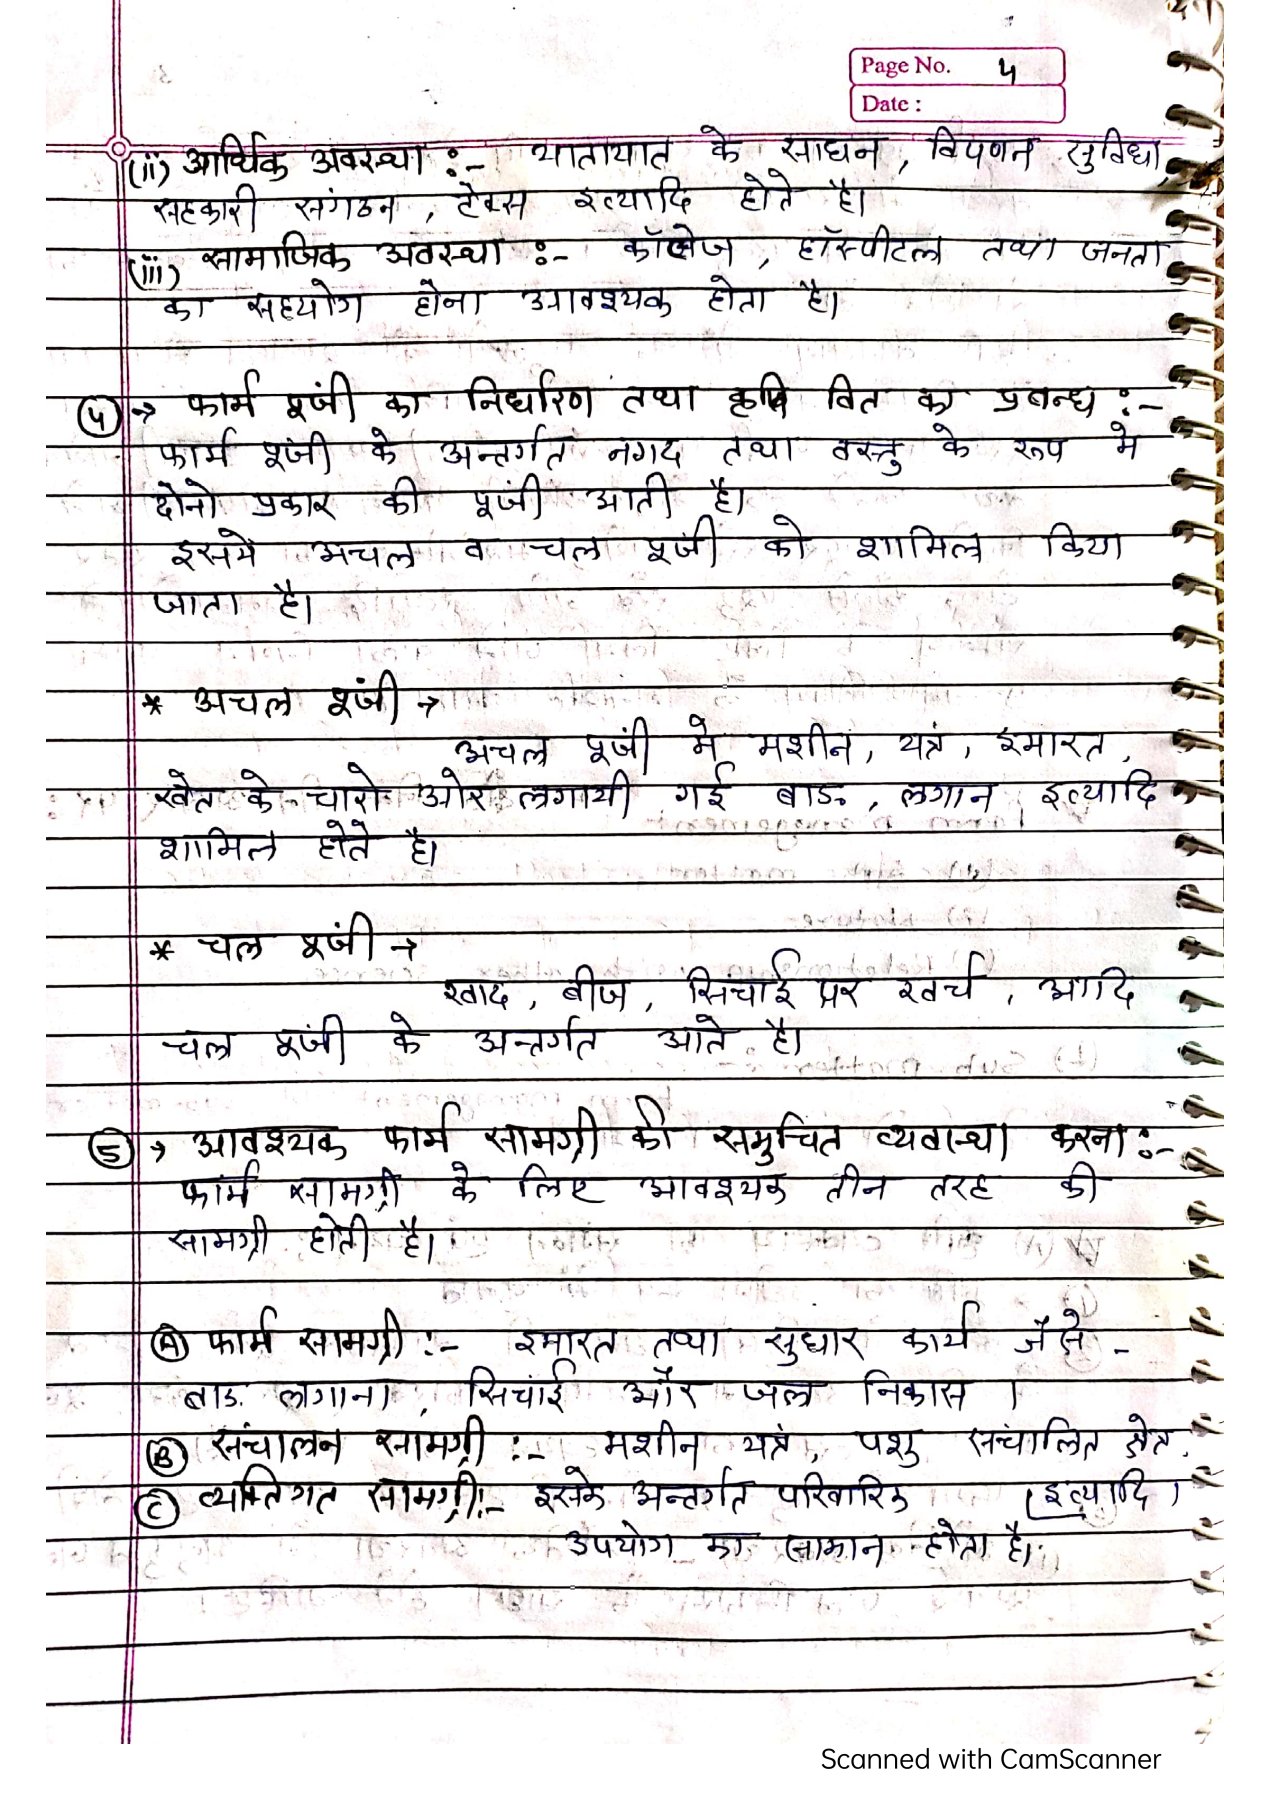 Page No. 4
Date :
(ii) आर्थिक अवस्था :- यातायात के साधन, विपणन सुविधा,
सहकारी संगठन, टेक्स इत्यादि होते है।
(iii) सामाजिक अवस्था :- कॉलेज, हॉस्पीटल तथा जनता
का सहयोग होना आवश्यक होता है।
4 → फार्म पूंजी का निर्धारण तथा कृषि वित का प्रबन्ध :-
फार्म पूंजी के अन्तर्गत नगद तथा वस्तु के रूप मे
दोनो प्रकार की पूंजी आती है।
इसमें अचल व चल पूंजी को शामिल किया
जाता है।
* अचल पूंजी →
अचल पूंजी मे मशीन, यत्रं, इमारत,
खेत के चारो ओर लगायी गई बाड, लगान इत्यादि
शामिल होते है।
* चल पूंजी →
खाद, बीज, सिंचाई पर खर्च, आदि
चल पूंजी के अन्तर्गत आते है।
5 → आवश्यक फार्म सामग्री की समुचित व्यवस्था करना :-
फार्म सामग्री के लिए आवश्यक तीन तरह की
सामग्री होती है।
A फार्म सामग्री :- इमारत तथा सुधार कार्य जैसे -
बाड. लगाना, सिचांई और जल निकास ।
B संचालन सामग्री :- मशीन यत्रं, पशु संचालित
(इत्यादि ।
C व्यक्तिगत सामग्री:- इसके अन्तर्गत परिवारिक
उपयोग का सामान होता है।
Scanned with CamScanner